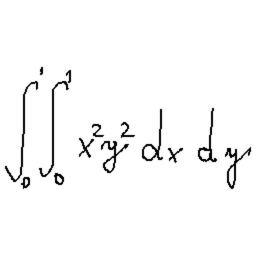 ∫₀¹ ∫₀¹ x²y² dx dy